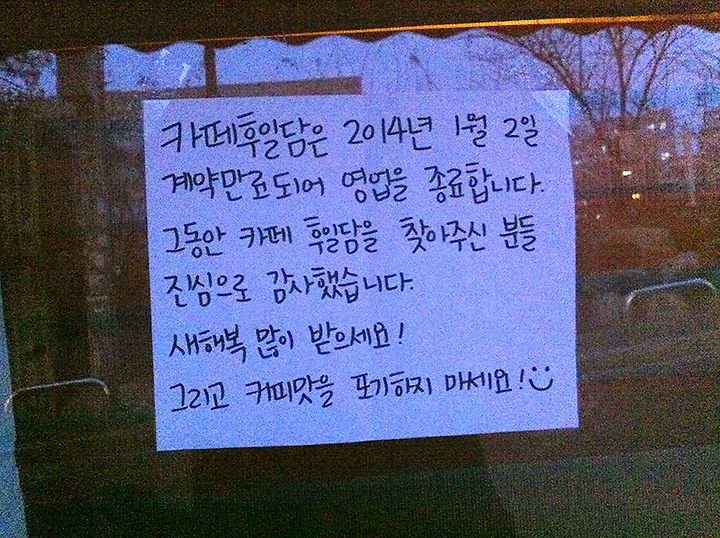 카페후일담은 2014년 1월 2일
계약만료되어 영업을 종료합니다.
그동안 카페 후일담을 찾아주신 분들
진심으로 감사했습니다.
새해복 많이 받으세요!
그리고 커피맛을 포기하지 마세요!